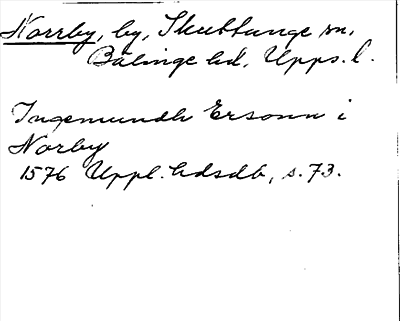 Norrby, by, Skuttunge sn,
Bälinge hd, Upps. l.
Ingemundh Ersonn i
Norby
1576 Uppl. hdsdb, s. 73.